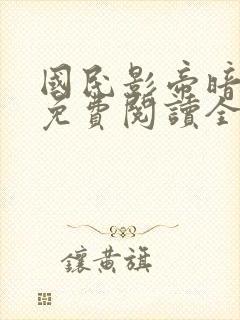 國民影帝暗
免費閱讀全
鑲黃旗